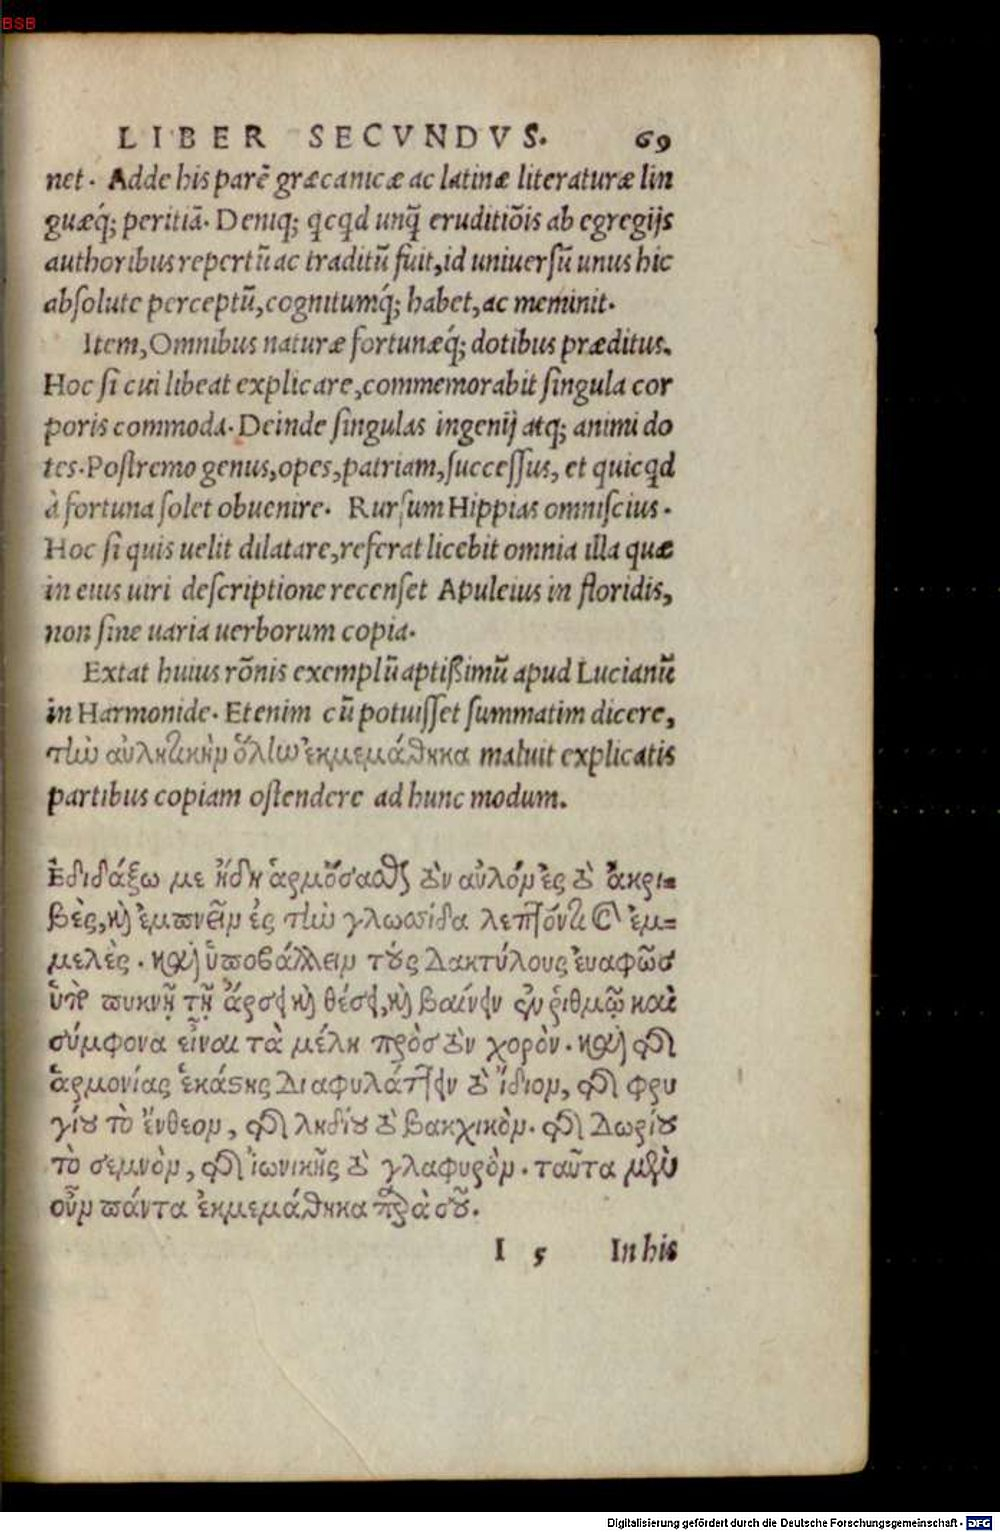 BSB
LIBER SECVNDVS. 69
net. Adde his parē græcanicæ ac latinæ literaturæ lin
guæq́; peritiā. Deniq; qcqd unq̄ eruditiōis ab egregijs
authoribus repertū ac traditū fuit, id uniuersū unus hic
absolute perceptū, cognitumq́; habet, ac meminit.
Item, Omnibus naturæ fortunæq́; dotibus præditus.
Hoc si cui libeat explicare, commemorabit singula cor
poris commoda. Deinde singulas ingenij atq; animi do
tes. Postremo genus, opes, patriam, successus, et quicqd
à fortuna solet obuenire. Rursum Hippias omniscius.
Hoc si quis uelit dilatare, referat licebit omnia illa quæ
in eius uiri descriptione recenset Apuleius in floridis,
non sine uaria uerborum copia.
Extat huius rōnis exemplū aptißimū apud Lucianū
in Harmonide. Etenim cū potuisset summatim dicere,
τὼ αὐλητικὴν ὅλιω ἐκμεμάθηκα maluit explicatis
partibus copiam ostendere ad hunc modum.
Ἐδιδάξω με ἤδη ἁρμόσασθαι τὸν αὐλόν ἐς τὸ ἀκρι-
βὲς, καὶ ἐμπνεῖν ἐς τὼ γλωσσίδα λεπτόν τι καὶ ἐμ-
μελὲς. καὶ ὑποβάλλειν τοὺς δακτύλους ἐυαφῶσ
ὑπὸ πυκνῇ τῇ ἄρσει καὶ θέσει, καὶ βαίνειν ἐν ῥιθμῷ καὶ
σύμφονα εἶναι τὰ μέλη πρὸσ τὸν χορὸν. καὶ τῆς
ἁρμονίας ἑκάστης διαφυλάττειν τὸ ἴδιον, τῆς φρυ
γίου τὸ ἔνθεον, τῆς ληδίου τὸ βακχικὸν. τῆς Δωρίου
τὸ σεμνὸν, τῆς ἰωνικῆς τὸ γλαφυρὸν. ταῦτα μὲν
οὖν πάντα ἐκμεμάθηκα παρὰ σοῦ.
I 5 In his
Digitalisierung gefördert durch die Deutsche Forschungsgemeinschaft - DFG